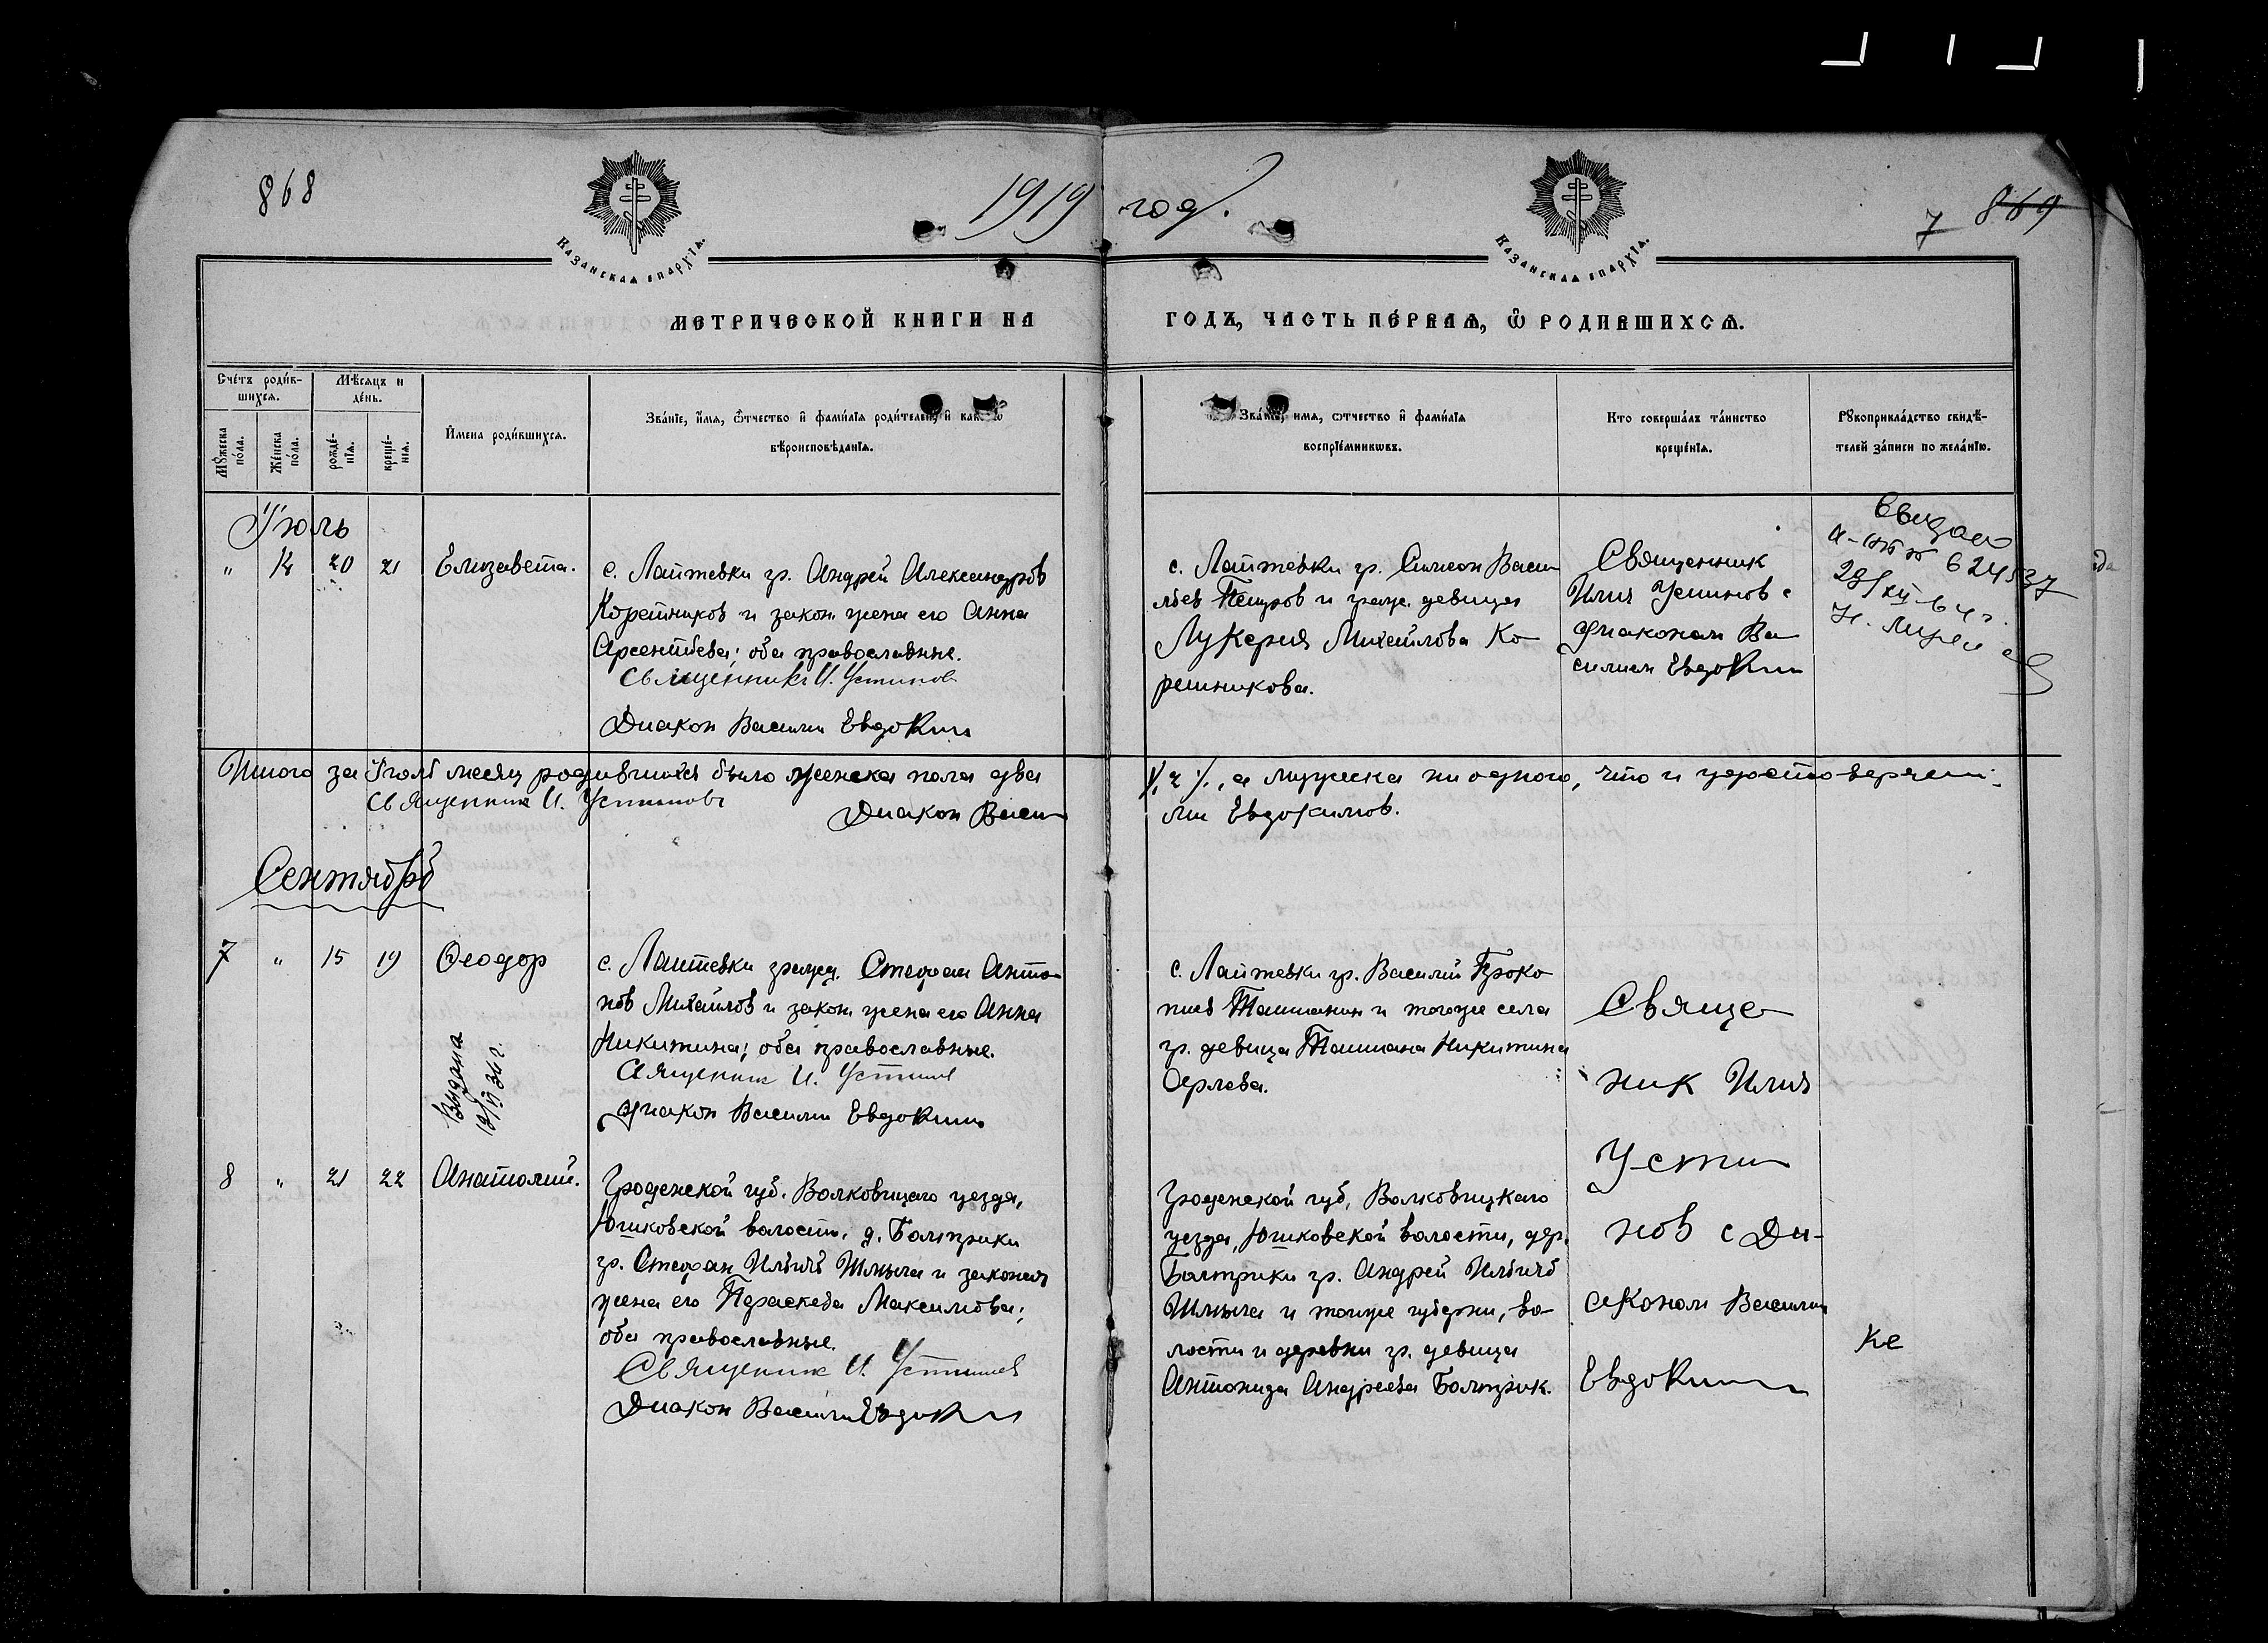 868
1919 год.
7 869
Казанская епархїа.
Казанская епархїа.
МЕТРИЧЕСКОЙ КНИГИ НА
ГОДЪ, ЧАСТЬ ПЕ́РВАЯ, Ѿ РОДИВШИХСЯ.
Сче́тъ роди́вшихся.
Мѣсяцъ и де́нь.
Мꙋжеска по́ла.
Же́нска по́ла.
рожде́нїя.
креще́нїя.
И҆мена роди́вшихся.
Зва́нїе, и҆мя, ѻ҆тчество и҆ фами́лїя роди́телей, и҆
вѣроисповѣданїя.
имя, ѻтчество и҆ фами́лїя
воспрїе́мникѡвъ.
Кто соверша́лъ та́инство
креще́нїя.
Рꙋкоприкла́дство свидѣ́-
телей за́писи по жела́нїю.
Іюль
" 14 20 21 Елизавета.
с. Лаптевки гр. Андрей Александров
Корейников и закон. жена его Анна
Арсентьева; оба православные.
Священникъ И. Устинов
Диакон Василий Евдоким
с. Лаптевки гр. Симеон Васи-
льев Петров и гражд. девица
Лукерия Михайлова Ко-
решникова.
Священник
Илия Устинов с
диаконом Ва-
силием Евдоким
624537
Итого за Іюль месяц родившихся было женска пола два
/.2./, а мужеска ни одного, что и удостоверяем:
Священник И. Устиновъ
Диакон Васи-
лий Евдокимов.
Сентябрь
7 " 15 19 Феодор
Выдана
с. Лаптевки гражд. Стефан Анто-
нов Михайлов и закон. жена его Анна
Никитина; оба православные.
Священник И. Устинов
Диакон Василий Евдоким
с. Лаптевки гр. Василий Проко-
пиев Ташманин и тогоже села
гр. девица Татиана Никитина
Орлова.
Свяще-
ник Илия
Усти-
нов с Ди-
аконом Василием
Евдоким
8 " 21 22 Анатолий.
Гродненской губ. Волковицкаго уезда,
Юшковской волости, д. Болтрики
гр. Стефан Ильичъ Шмыга и законая
жена его Параскева Максимова;
оба православные.
Священник И. Устинов
Диакон Василий Евдоким
Гродненской губ, Волковицкаго
уезда, Юшковской волости, дер.
Болтрики гр. Андрей Ильичъ
Шмыга и тогоже губерни, во-
лости и деревни гр. девица
Антонида Андреева Болтрик.
Ке